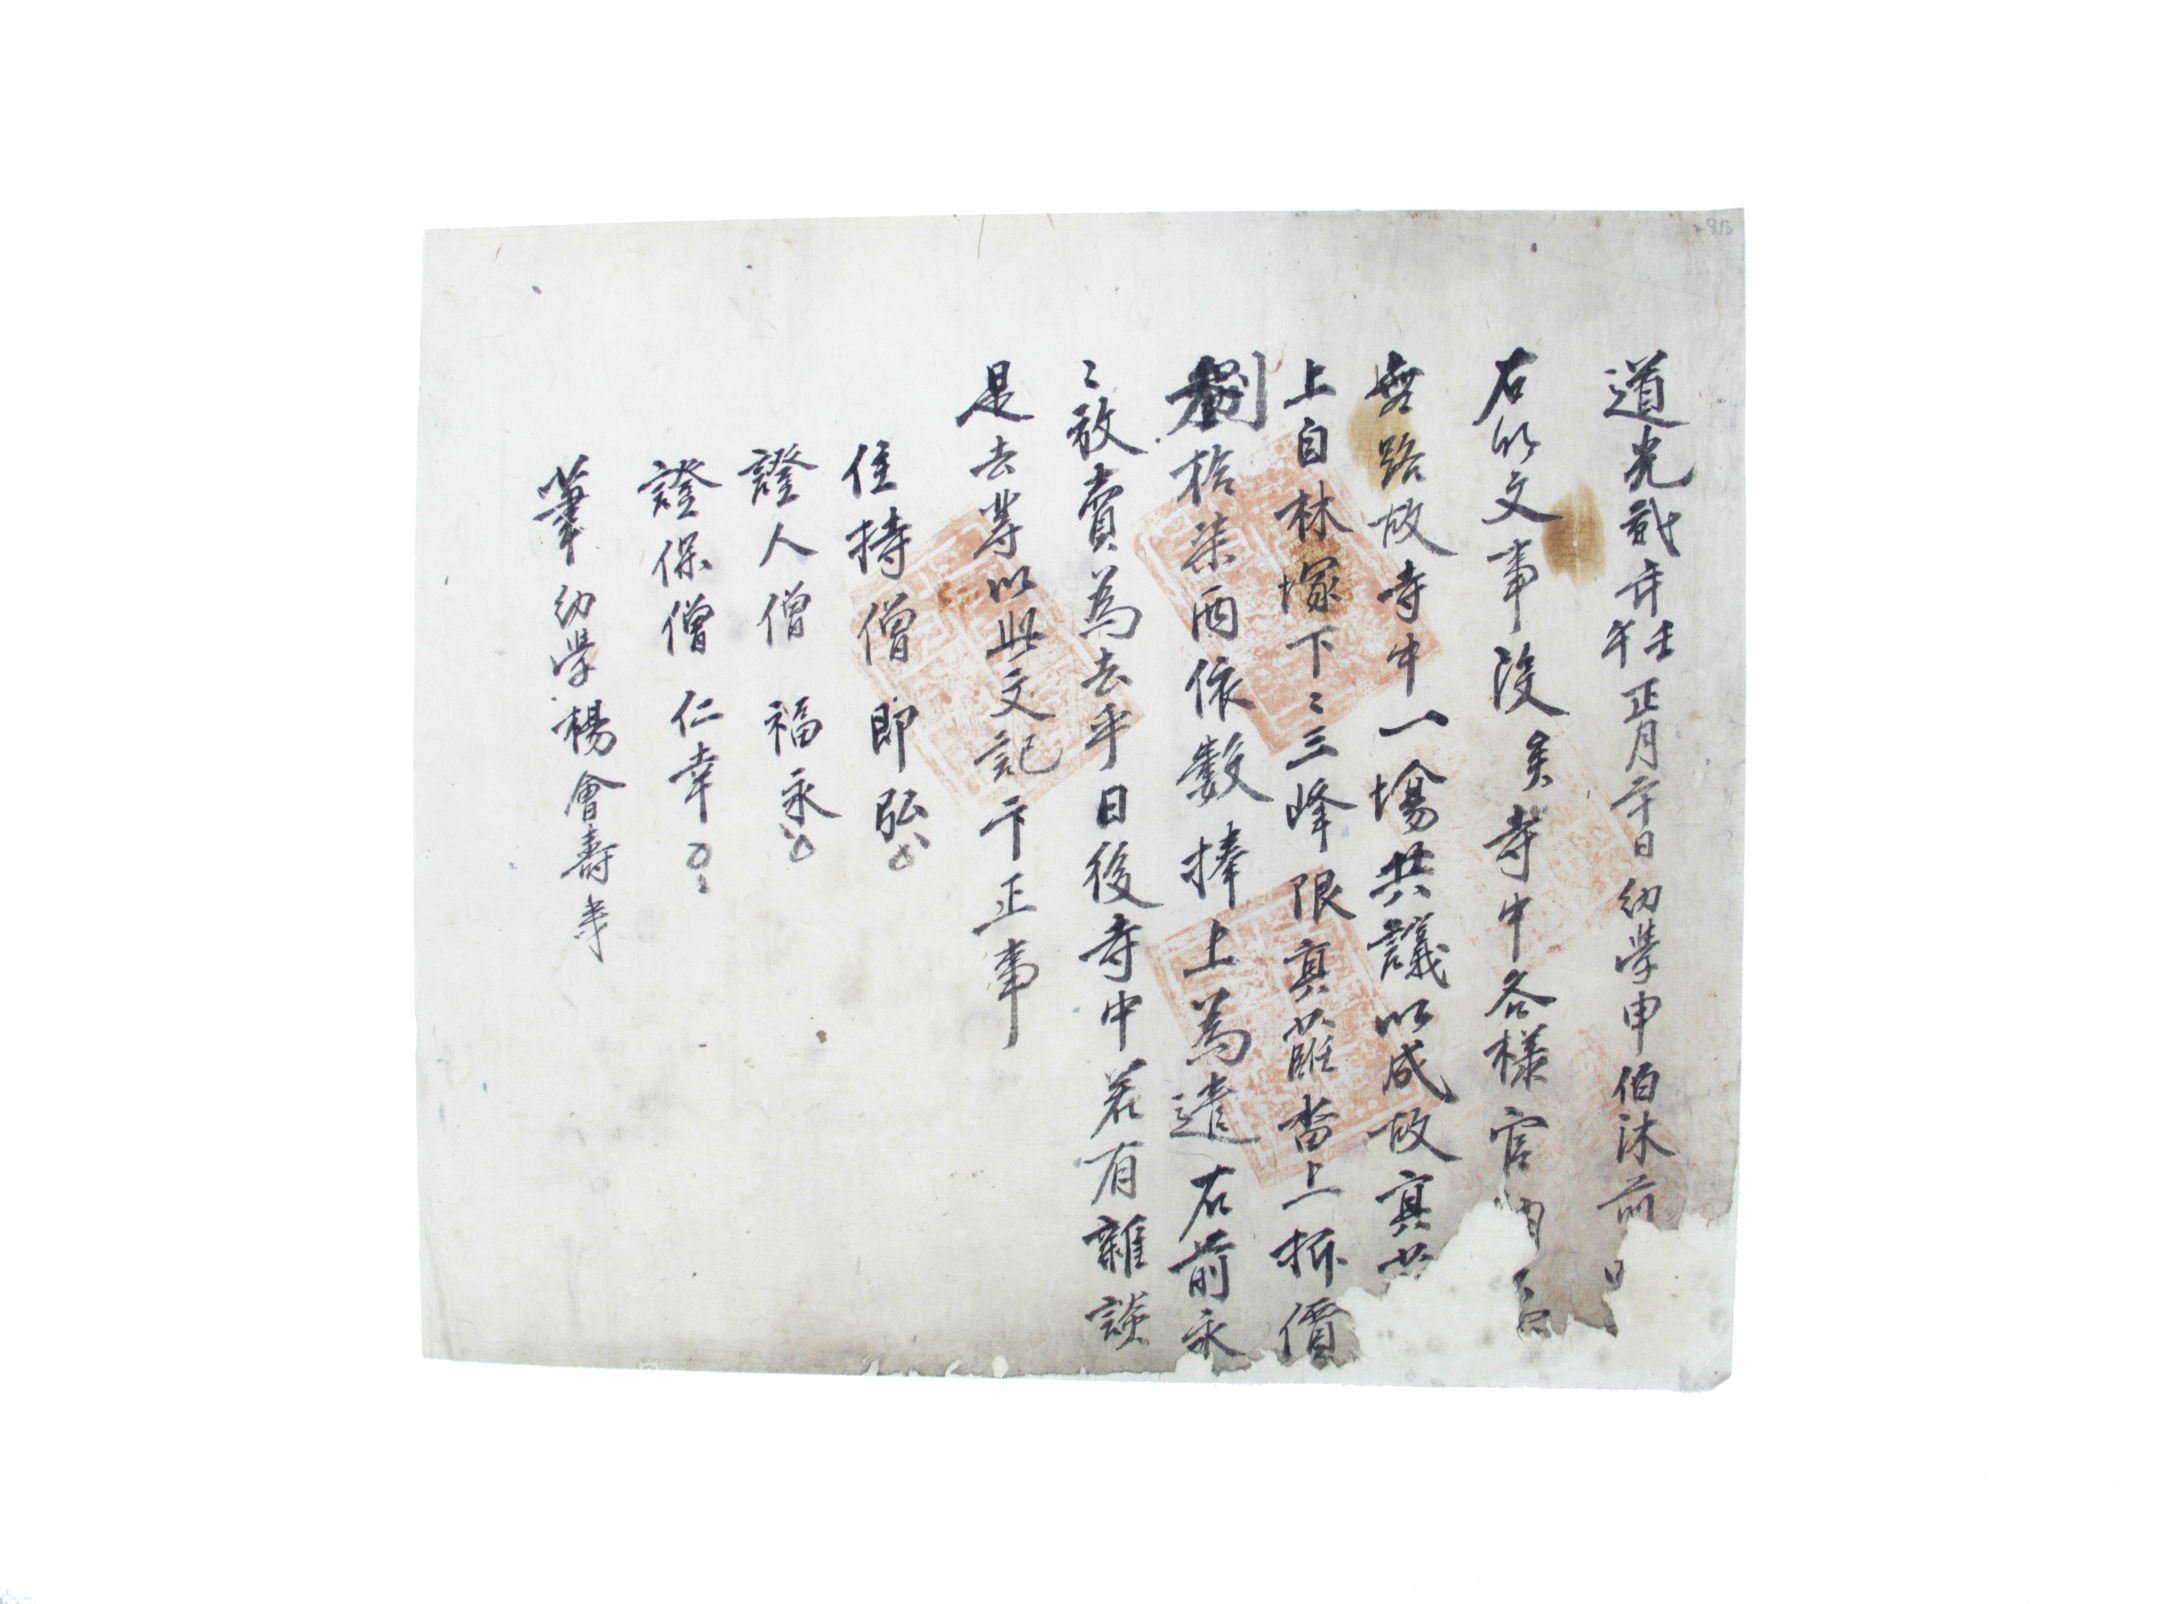 道光貳年壬午正月二十日幼學申伯沐前
右的文事段矣寺中各樣官
無路故寺中一場共議以成故寘
上自林塚下〻三峰限寘蘿畓上折價
捌拾柒兩依數捧上爲遣右前永
〻放賣爲去乎日後寺中若有雜談
是去等以此文記卞正事
住持僧 卽弘
證人僧 福永
證保僧 仁幸
筆 幼學 楊會壽